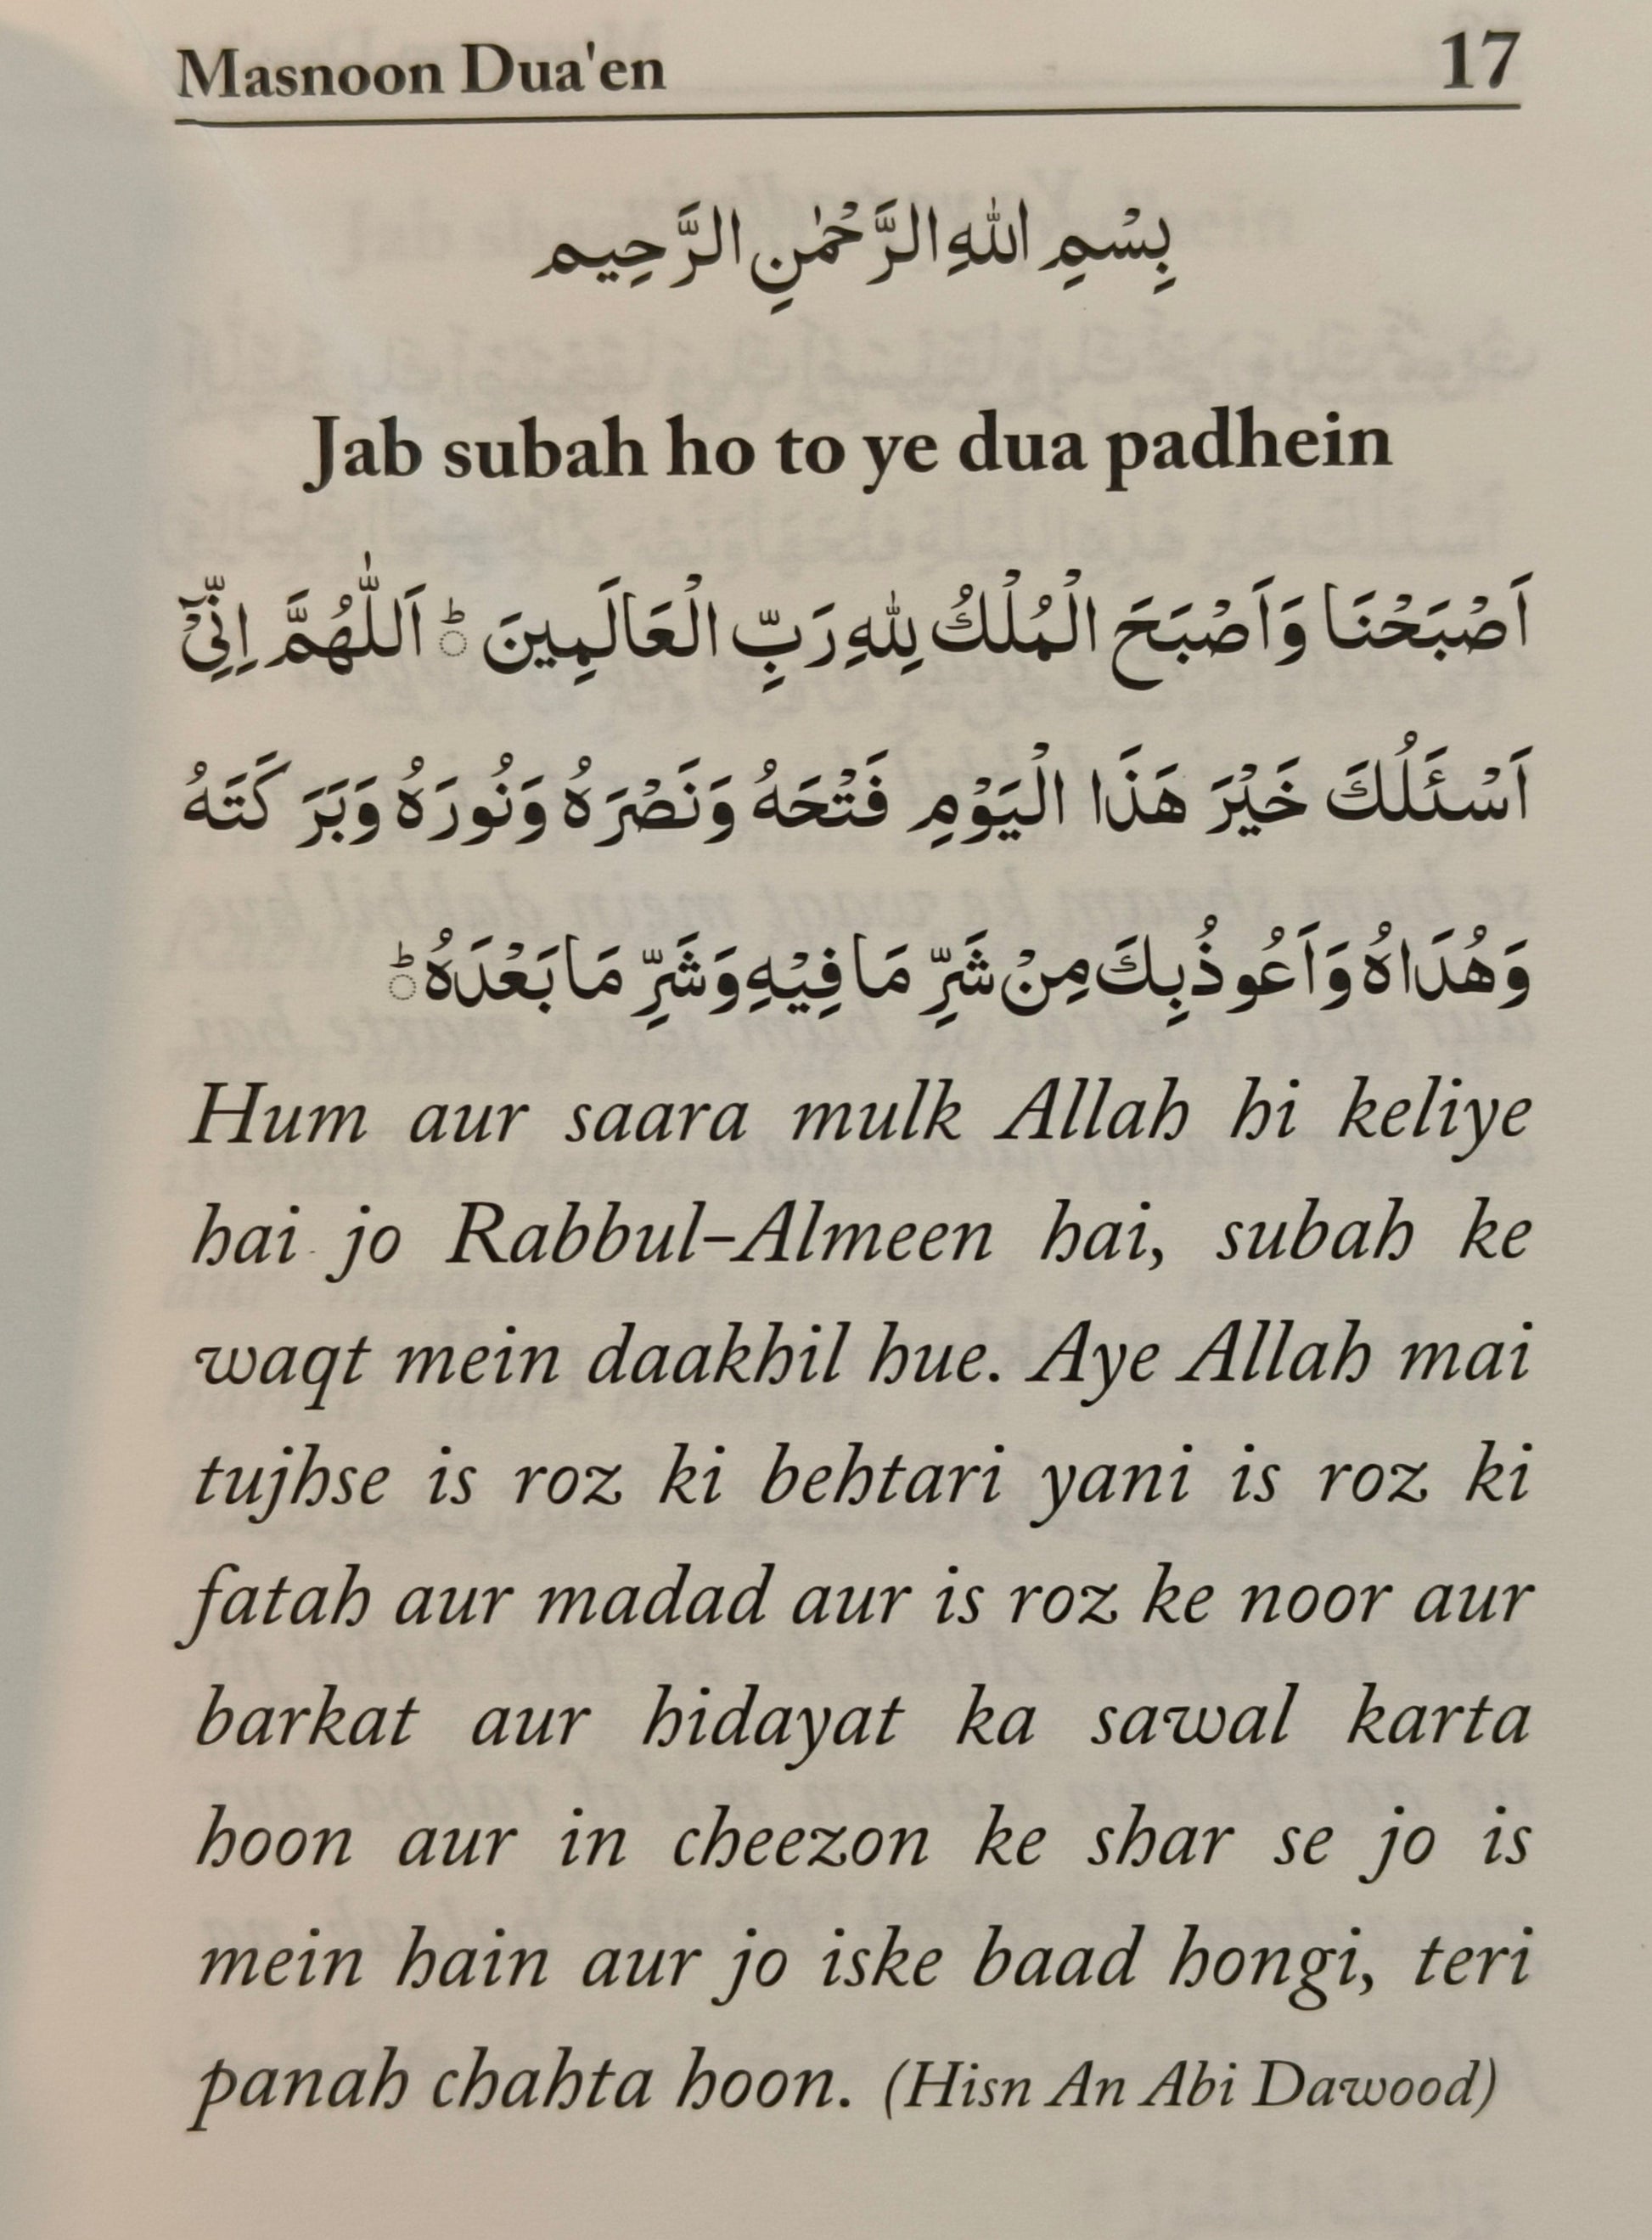 Masnoon Dua'en 17
بِسْمِ اللهِ الرَّحْمٰنِ الرَّحِيم
Jab subah ho to ye dua padhein
اَصْبَحْنَا وَاَصْبَحَ الْمُلْكُ لِلّٰهِ رَبِّ الْعَالَمِينَ ؕ اَللّٰهُمَّ اِنِّيْٓ
اَسْئَلُكَ خَيْرَ هَذَا الْيَوْمِ فَتْحَهُ وَنَصْرَهُ وَنُورَهُ وَبَرَكَتَهُ
وَهُدَاهُ وَاَعُوذُبِكَ مِنْ شَرِّ مَا فِيْهِ وَشَرِّ مَا بَعْدَهُ ؕ
Hum aur saara mulk Allah hi keliye
hai jo Rabbul-Almeen hai, subah ke
waqt mein daakhil hue. Aye Allah mai
tujhse is roz ki behtari yani is roz ki
fatah aur madad aur is roz ke noor aur
barkat aur hidayat ka sawal karta
hoon aur in cheezon ke shar se jo is
mein hain aur jo iske baad hongi, teri
panah chahta hoon. (Hisn An Abi Dawood)